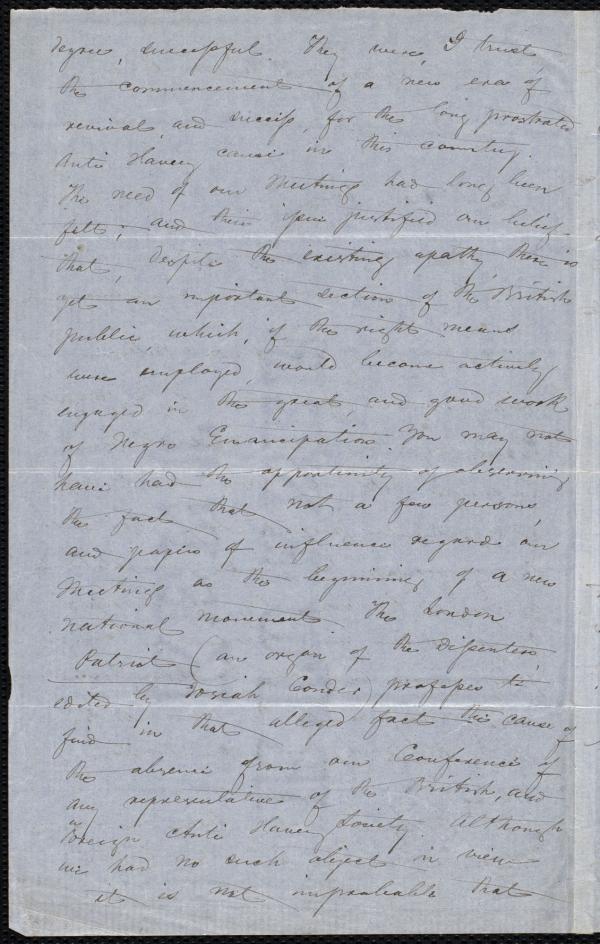 degree, successful. They were, I trust
the commencement of a new era of
revival, and success, for the long prostrated
Anti Slavery cause in this country.
The need of our Meetings had long been
felt; and their issue justified our belief
that, despite the existing apathy, there is
yet an important section of the British
public, which, if the right means
were employed, would become actively
engaged in the great, and good work
of Negro Emancipation. You may not
have had the opportunity of observing
the fact that not a few persons,
and papers of influence regard our
Meetings as the beginning of a new
national movement. The London
Patriot (an organ of the dissenters,
edited by Josiah Conder) professes to
find in that alleged fact the cause of
the absence from our Conference of
any representative of the British, and
Foreign Anti Slavery Society. Although
we had no such object in view
it is not improbable that